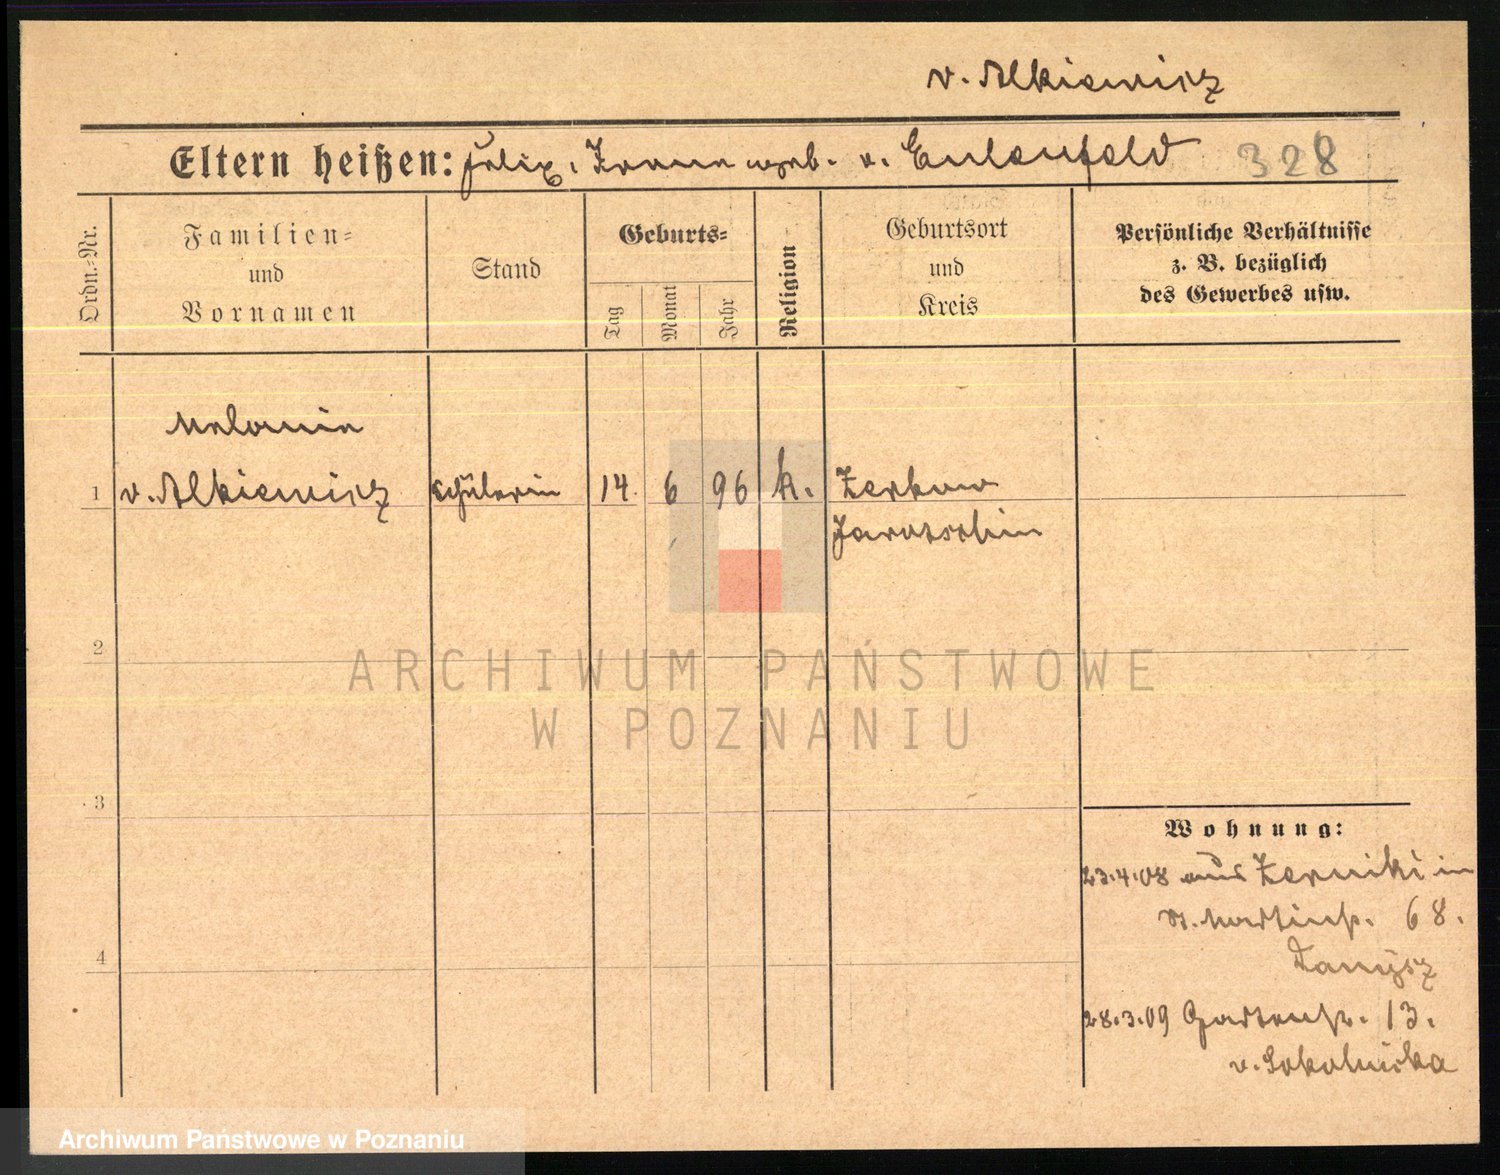 v. Alkiewicz
Eltern heißen: Felix, Ivanna geb. v. Eulenfeld 328
Ordn.-Nr.
Familien-
und
Vornamen
Stand
Geburts-
Tag
Monat
Jahr
Religion
Geburtsort
und
Kreis
Persönliche Verhältnisse
z. B. bezüglich
des Gewerbes usw.
Melanie
1 v. Alkiewicz Schülerin 14. 6 96 k. Zerkow
Jarotschin
2
3
4
Wohnung:
23.4.08 aus Zerniki in
St. Martinstr. 68.
Danysz
28.3.09 Gartenstr. 13.
v. Sokolnicka
ARCHIWUM PAŃSTWOWE
W POZNANIU
Archiwum Państwowe w Poznaniu